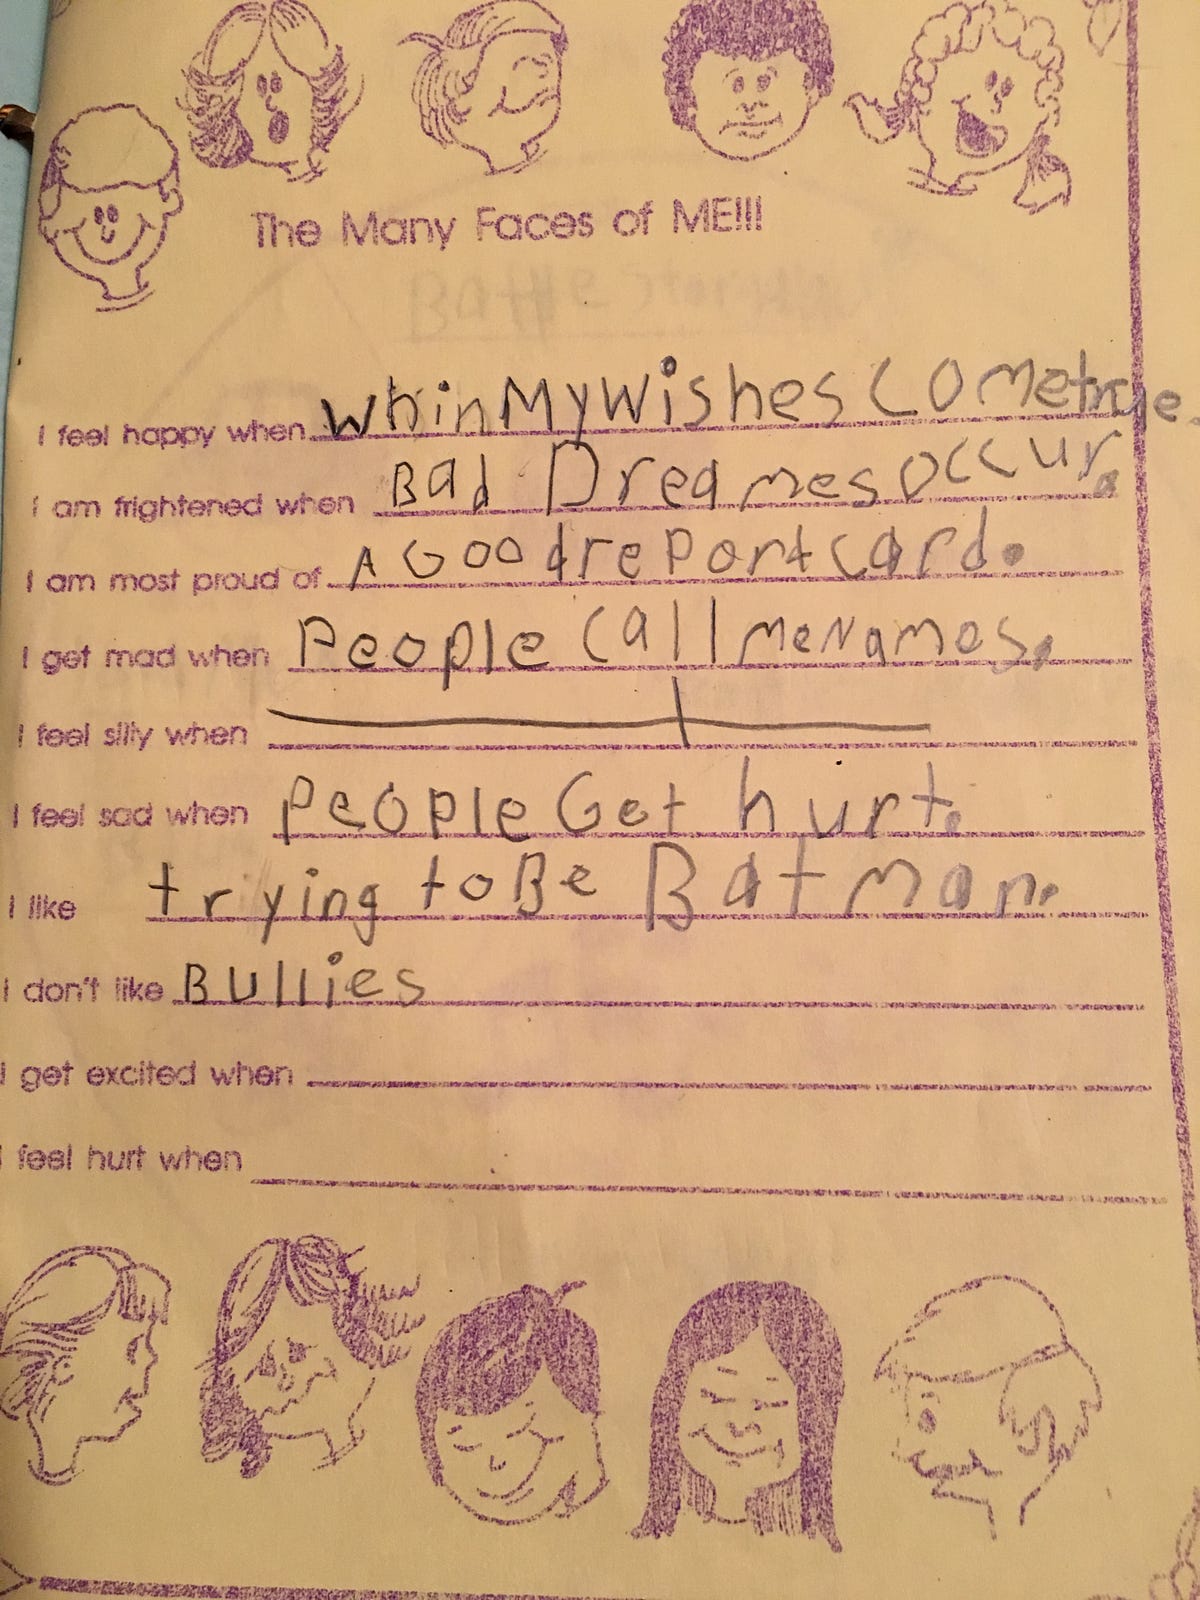 The Many Faces of ME!!!
I feel happy when whin My wishes Come true.
I am frightened when Bad Dreames occur.
I am most proud of A Good report card.
I get mad when People call me Names.
I feel silly when
I feel sad when People Get hurt.
I like trying to Be Batman.
I don't like Bullies
I get excited when
I feel hurt when